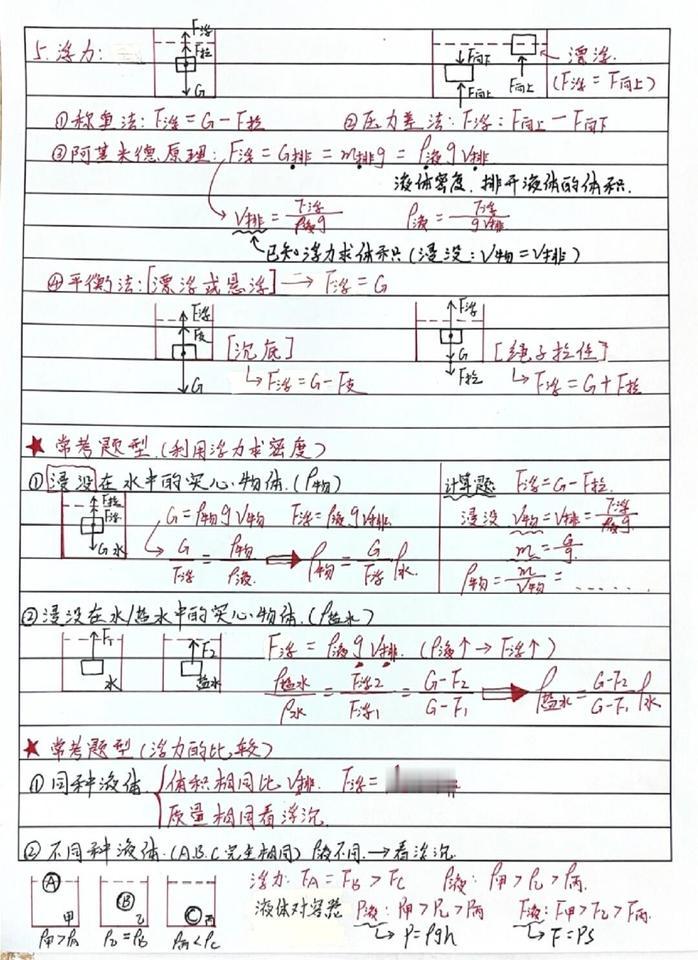 5. 浮力:
F浮
F拉
G
F向下
F向上
F向上
漂浮.
(F浮 = F向上)
①称重法: F浮 = G - F拉
②压力差法: F浮 = F向上 - F向下
③阿基米德原理: F浮 = G排 = m排g = ρ液gV排
液体密度. 排开液体的体积.
V排 = F浮/ρ液g
ρ液 = F浮/gV排
已知浮力求体积 (浸没: V物 = V排)
④平衡法: [漂浮或悬浮] → F浮 = G
F浮
F支
G
[沉底]
↳ F浮 = G - F支
F浮
G
F拉
[绳子拉住]
↳ F浮 = G + F拉
★ 常考题型. (利用浮力求密度)
①浸没在水中的实心物体. (ρ物)
F拉
F浮
G 水
G = ρ物gV物 F浮 = ρ液gV排
G/F浮 = ρ物/ρ液. ⇒ ρ物 = G/F浮 ρ水.
计算题: F浮 = G - F拉.
浸没 V物 = V排 = F浮/ρ液g.
m = G/g.
ρ物 = m/V物 = ......
②浸没在水/盐水中的实心物体. (ρ盐水)
F1
水
F2
盐水
F浮 = ρ液gV排. (ρ液↑ → F浮↑)
ρ盐水/ρ水 = F浮2/F浮1 = G-F2/G-F1 ⇒ ρ盐水 = G-F2/G-F1 ρ水
★ 常考题型 (浮力的比较)
①同种液体. { 体积相同比 V排. F浮 =
质量相同看浮沉.
②不同种液体. (A.B.C完全相同) ρ液不同. → 看浮沉.
A
甲
ρ甲 > ρA
B
乙
ρ乙 = ρB
C
丙
ρ丙 < ρC
浮力: FA = FB > FC ρ液: ρ甲 > ρ乙 > ρ丙.
液体对容器 P液: P甲 > P乙 > P丙 F液: F甲 > F乙 > F丙.
↳ P = ρgh ↳ F = PS